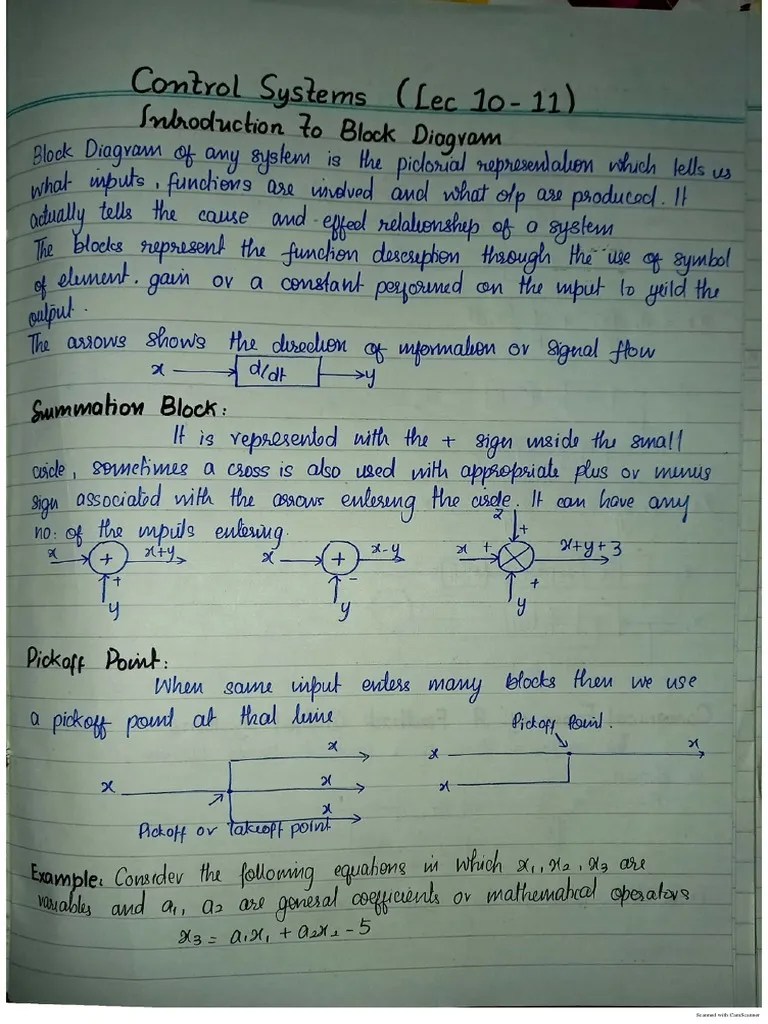 Control Systems (Lec 10-11)
Introduction to Block Diagram
Block Diagram of any system is the pictorial representation which tells us
what inputs, functions are involved and what o/p are produced. It
actually tells the cause and effect relationship of a system
The blocks represent the function description through the use of symbol
of element. gain or a constant performed on the input to yeild the
output.
The arrows shows the direction of information or signal flow
x d/dt y
Summation Block:
It is represented with the + sign inside the small
circle, sometimes a cross is also used with appropriate plus or minus
sign associated with the arrows entering the circle. It can have any
no: of the inputs entering.
x + x+y + y
x + x-y - y
z + x + x+y+3 + y
Pickoff Point:
When same input enters many blocks then we use
a pickoff point at that time
Pickoff Point.
x x x x
x x x
Pickoff or Takeoff point
Example: Consider the following equations in which x1, x2, x3 are
variables and a1, a2 are general coefficients or mathematical operators
x3 = a1x1 + a2x2 - 5
Scanned with CamScanner